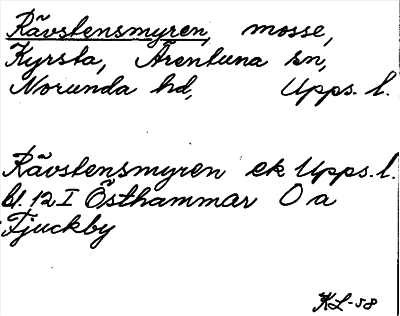 Rävstensmyren, mosse,
Kyrsta, Ärentuna sn,
Norunda hd, Upps. l.
Rävstensmyren ek Upps. l.
bl. 12 I Östhammar O a
Fjuckby
KL-58